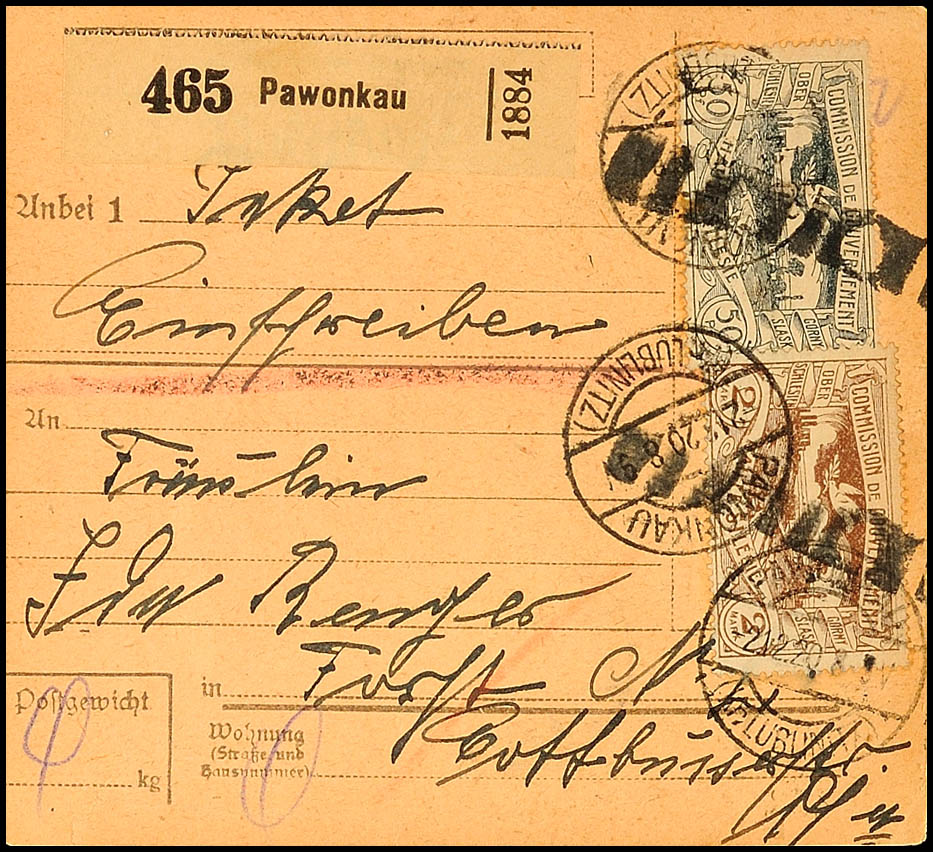 465 Pawonkau
1884
Anbei 1 Paket
Einschreiben
An
Fräulein
Ida Renger
in Forst N.
Wohnung
(Straße und
Hausnummer)
Cottbuserstr.
Postgewicht
kg
50 PF
COMMISSION DE GOUVERNEMENT
HAUTE SILESIE
OBER SCHLESIEN
GÓRNY ŚLĄSK
50
2 MARK
COMMISSION DE GOUVERNEMENT
HAUTE SILESIE
OBER SCHLESIEN
GÓRNY ŚLĄSK
2 MARK
PAWONKAU
(KR. LUBLINITZ)